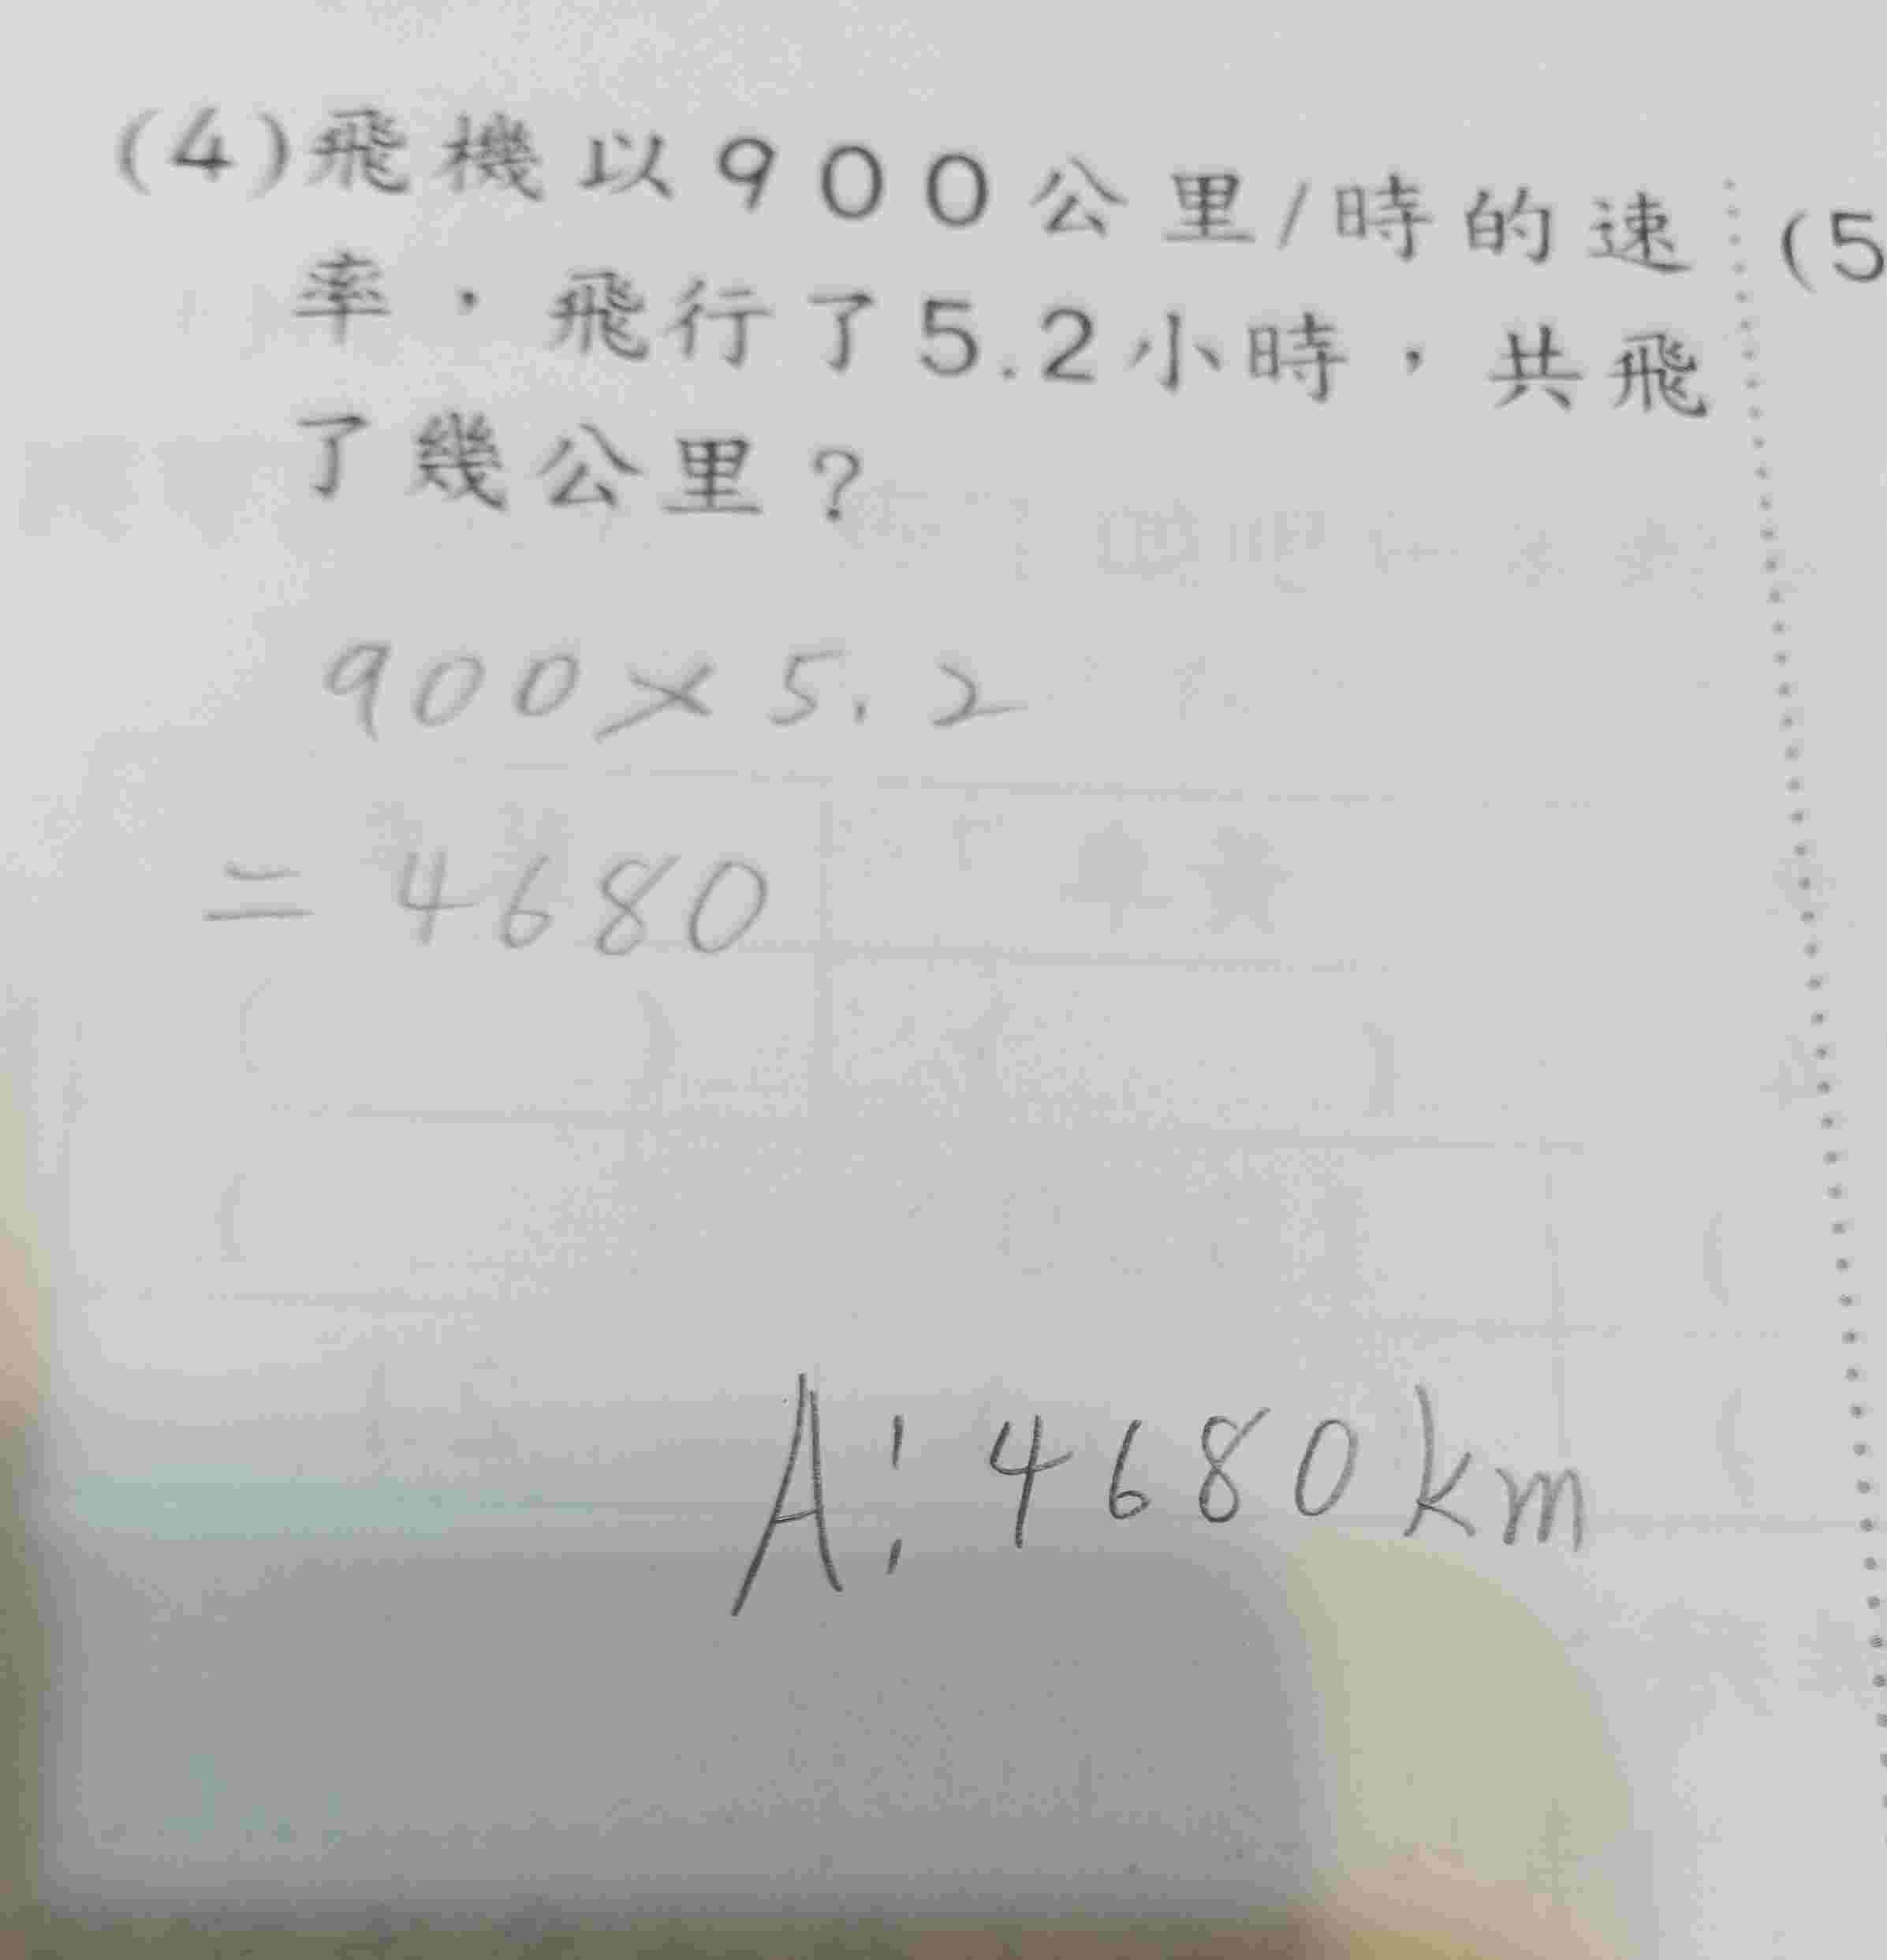 (4)飛機以900公里/時的速
率，飛行了5.2小時，共飛
了幾公里？
(5
900×5.2
=4680
A:4680km